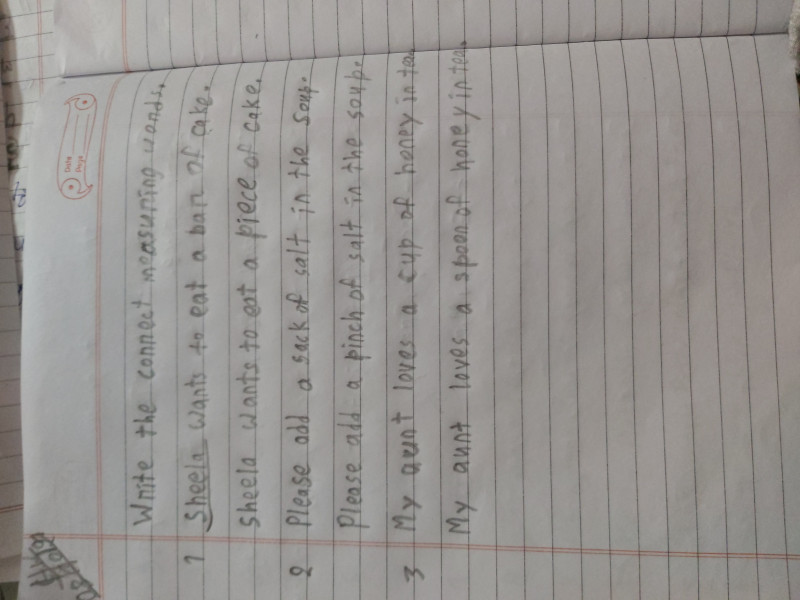 Date
Page
Write the connect measuring words.
1 Sheela wants to eat a bar of cake.
Sheela wants to eat a piece of cake.
2 Please add a sack of salt in the soup.
Please add a pinch of salt in the soup.
3 My aunt loves a cup of honey in tea.
My aunt loves a spoon of honey in tea.